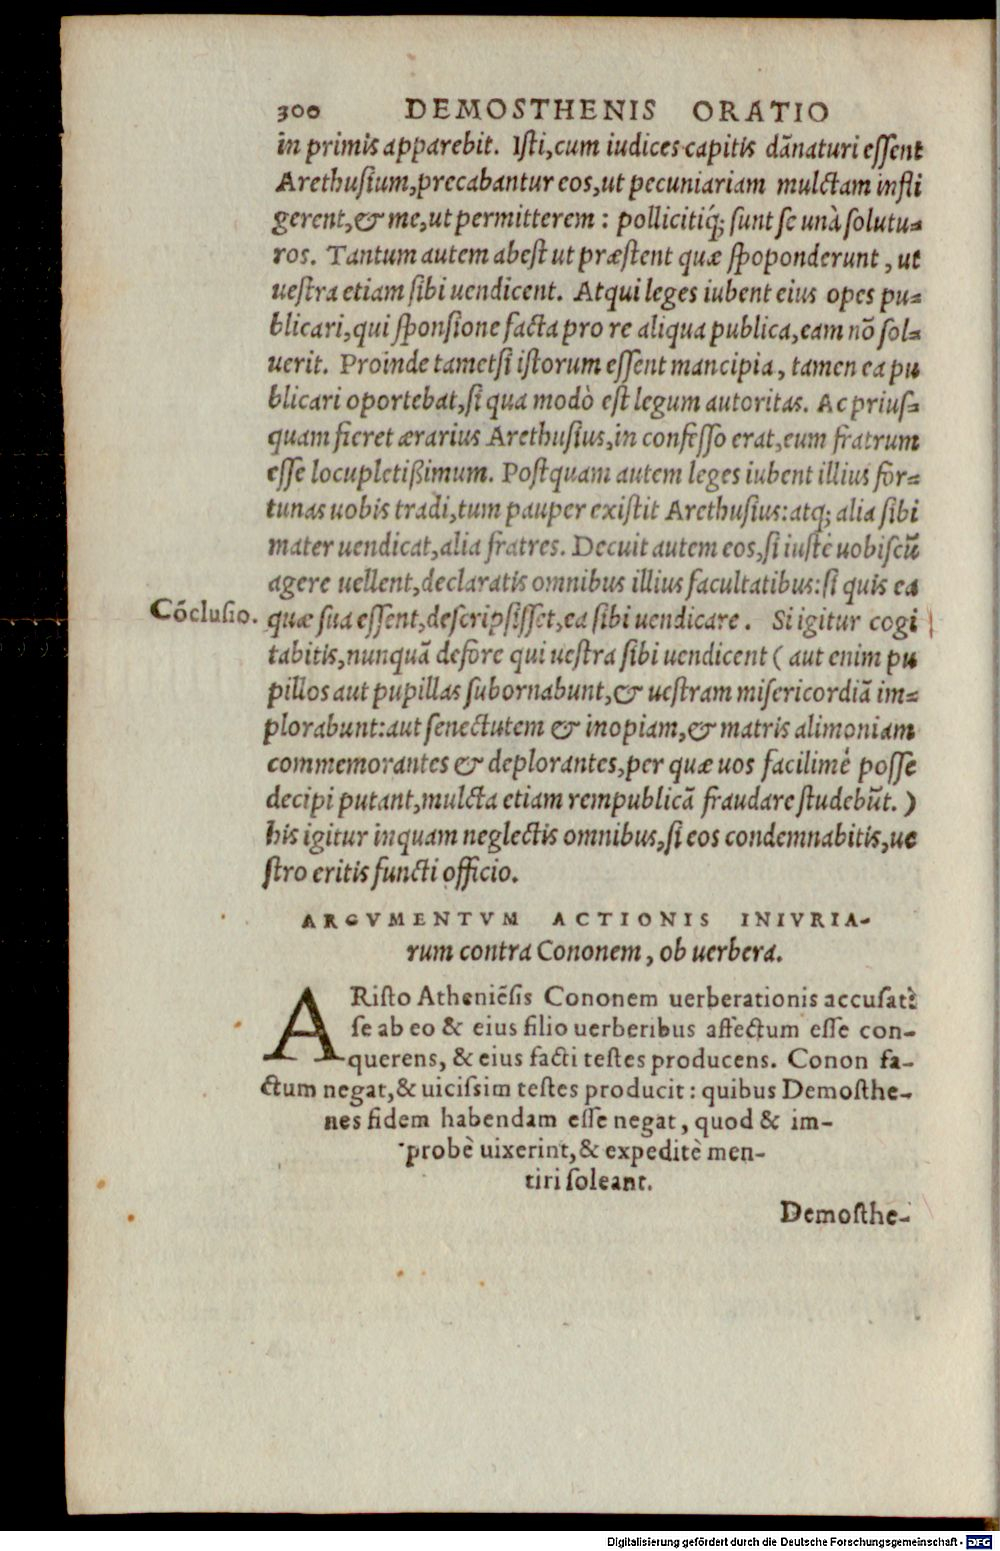 300 DEMOSTHENIS ORATIO
in primis apparebit. Isti, cum iudices capitis dãnaturi essent
Arethusium, precabantur eos, ut pecuniariam mulctam infli
gerent, & me, ut permitterem: pollicitiq́; sunt se unà solutu-
ros. Tantum autem abest ut præstent quæ spoponderunt, ut
uestra etiam sibi uendicent. Atqui leges iubent eius opes pu-
blicari, qui sponsione facta pro re aliqua publica, eam nõ sol-
uerit. Proinde tametsi istorum essent mancipia, tamen ea pu
blicari oportebat, si qua modò est legum autoritas. Ac prius-
quam fieret ærarius Arethusius, in confesso erat, eum fratrum
esse locupletißimum. Postquam autem leges iubent illius for-
tunas uobis tradi, tum pauper existit Arethusius: atq; alia sibi
mater uendicat, alia fratres. Decuit autem eos, si iustè uobiscũ
agere uellent, declaratis omnibus illius facultatibus: si quis ea
Cõclusio. quæ sua essent, descripsisset, ea sibi uendicare. Si igitur cogi
tabitis, nunquã defore qui uestra sibi uendicent (aut enim pu
pillos aut pupillas subornabunt, & uestram misericordiã im-
plorabunt: aut senectutem & inopiam, & matris alimoniam
commemorantes & deplorantes, per quæ uos facilimè posse
decipi putant, mulcta etiam rempublicã fraudare studebũt.)
his igitur inquam neglectis omnibus, si eos condemnabitis, ue
stro eritis functi officio.
ARGVMENTVM ACTIONIS INIVRIA-
rum contra Cononem, ob uerbera.
ARisto Atheniẽsis Cononem uerberationis accusat:
se ab eo & eius filio uerberibus affectum esse con-
querens, & eius facti testes producens. Conon fa-
ctum negat, & uicissim testes producit: quibus Demosthe-
nes fidem habendam esse negat, quod & im-
probè uixerint, & expeditè men-
tiri soleant.
Demosthe-
Digitalisierung gefördert durch die Deutsche Forschungsgemeinschaft - DFG